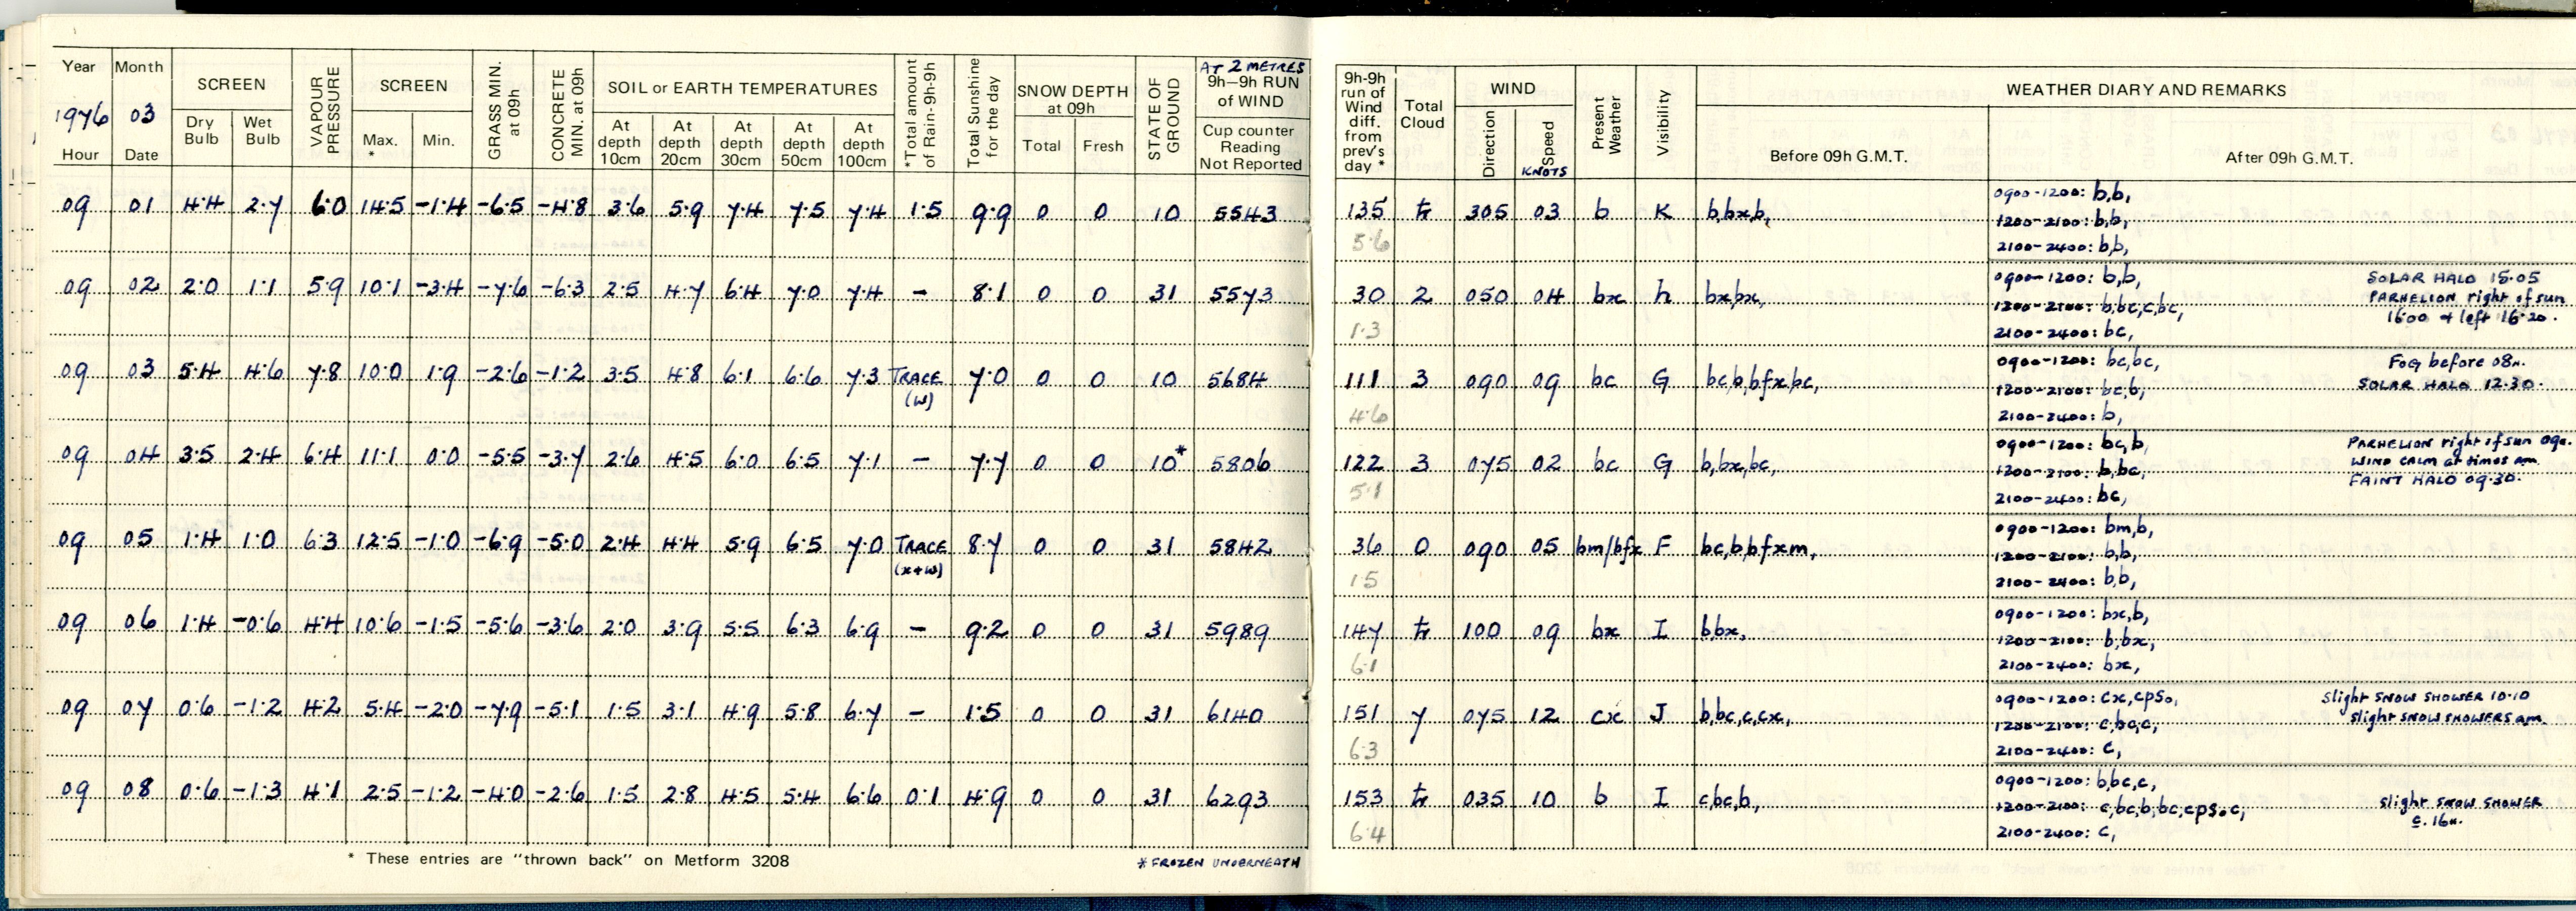 Year Month SCREEN VAPOUR PRESSURE SCREEN GRASS MIN. at 09h CONCRETE MIN. at 09h SOIL or EARTH TEMPERATURES *Total amount of Rain-9h-9h Total Sunshine for the day SNOW DEPTH at 09h STATE OF GROUND AT 2 METRES 9h–9h RUN of WIND 9h-9h run of Wind diff. from prev's day * Total Cloud WIND Present Weather Visibility WEATHER DIARY AND REMARKS
1976 03
Hour Date Dry Bulb Wet Bulb Max. * Min. At depth 10cm At depth 20cm At depth 30cm At depth 50cm At depth 100cm Total Fresh Cup counter Reading Not Reported Direction Speed KNOTS Before 09h G.M.T. After 09h G.M.T.
09 01 4.4 2.7 6.0 14.5 -1.4 -6.5 -4.8 3.6 5.9 7.4 7.5 7.4 1.5 9.9 0 0 10 5543 135 tr 305 03 b K b,bx,b, 0900-1200: b,b,
1200-2100: b,b,
5.6 2100-2400: b,b,
09 02 2.0 1.1 5.9 10.1 -3.4 -7.6 -6.3 2.5 4.7 6.4 7.0 7.4 – 8.1 0 0 31 5573 30 2 050 04 bx h bx,bx, 0900-1200: b,b, SOLAR HALO 15.05
1200-2100: b,bc,c,bc, PARHELION right of sun
1.3 2100-2400: bc, 16.00 + left 16.20.
09 03 5.4 4.6 7.8 10.0 1.9 -2.6 -1.2 3.5 4.8 6.1 6.6 7.3 TRACE (w) 7.0 0 0 10 5684 111 3 090 09 bc G bc,b,bfx,bc, 0900-1200: bc,bc, FOG before 08h.
1200-2100: bc,b, SOLAR HALO 12.30.
4.6 2100-2400: b,
09 04 3.5 2.4 6.4 11.1 0.0 -5.5 -3.7 2.6 4.5 6.0 6.5 7.1 – 7.7 0 0 10* 5806 122 3 075 02 bc G b,bx,bc, 0900-1200: bc,b, PARHELION right of sun 09h.
1200-2100: b,bc, WIND CALM at times am.
5.1 2100-2400: bc, FAINT HALO 09.30.
09 05 1.4 1.0 6.3 12.5 -1.0 -6.9 -5.0 2.4 4.4 5.9 6.5 7.0 TRACE (x+w) 8.7 0 0 31 5842 36 0 090 05 bm/bfx F bc,b,bfxm, 0900-1200: bm,b,
1200-2100: b,b,
1.5 2100-2400: b,b,
09 06 1.4 -0.6 4.4 10.6 -1.5 -5.6 -3.6 2.0 3.9 5.5 6.3 6.9 – 9.2 0 0 31 5989 147 tr 100 09 bx I b,bx, 0900-1200: bx,b,
1200-2100: b,bx,
6.1 2100-2400: bx,
09 07 0.6 -1.2 4.2 5.4 -2.0 -7.9 -5.1 1.5 3.1 4.9 5.8 6.7 – 1.5 0 0 31 6140 151 7 075 12 cx J b,bc,c,cx, 0900-1200: cx,cpso, slight SNOW SHOWER 10.10
1200-2100: c,bc,c, slight SNOW SHOWERS am.
6.3 2100-2400: c,
09 08 0.6 -1.3 4.1 2.5 -1.2 -4.0 -2.6 1.5 2.8 4.5 5.4 6.6 0.1 4.9 0 0 31 6293 153 tr 035 10 b I c,bc,b, 0900-1200: b,bc,c,
1200-2100: c,bc,b,bc,cpso,c, slight SNOW SHOWER
6.4 2100-2400: c, c. 16h.
* These entries are "thrown back" on Metform 3208 * FROZEN UNDERNEATH